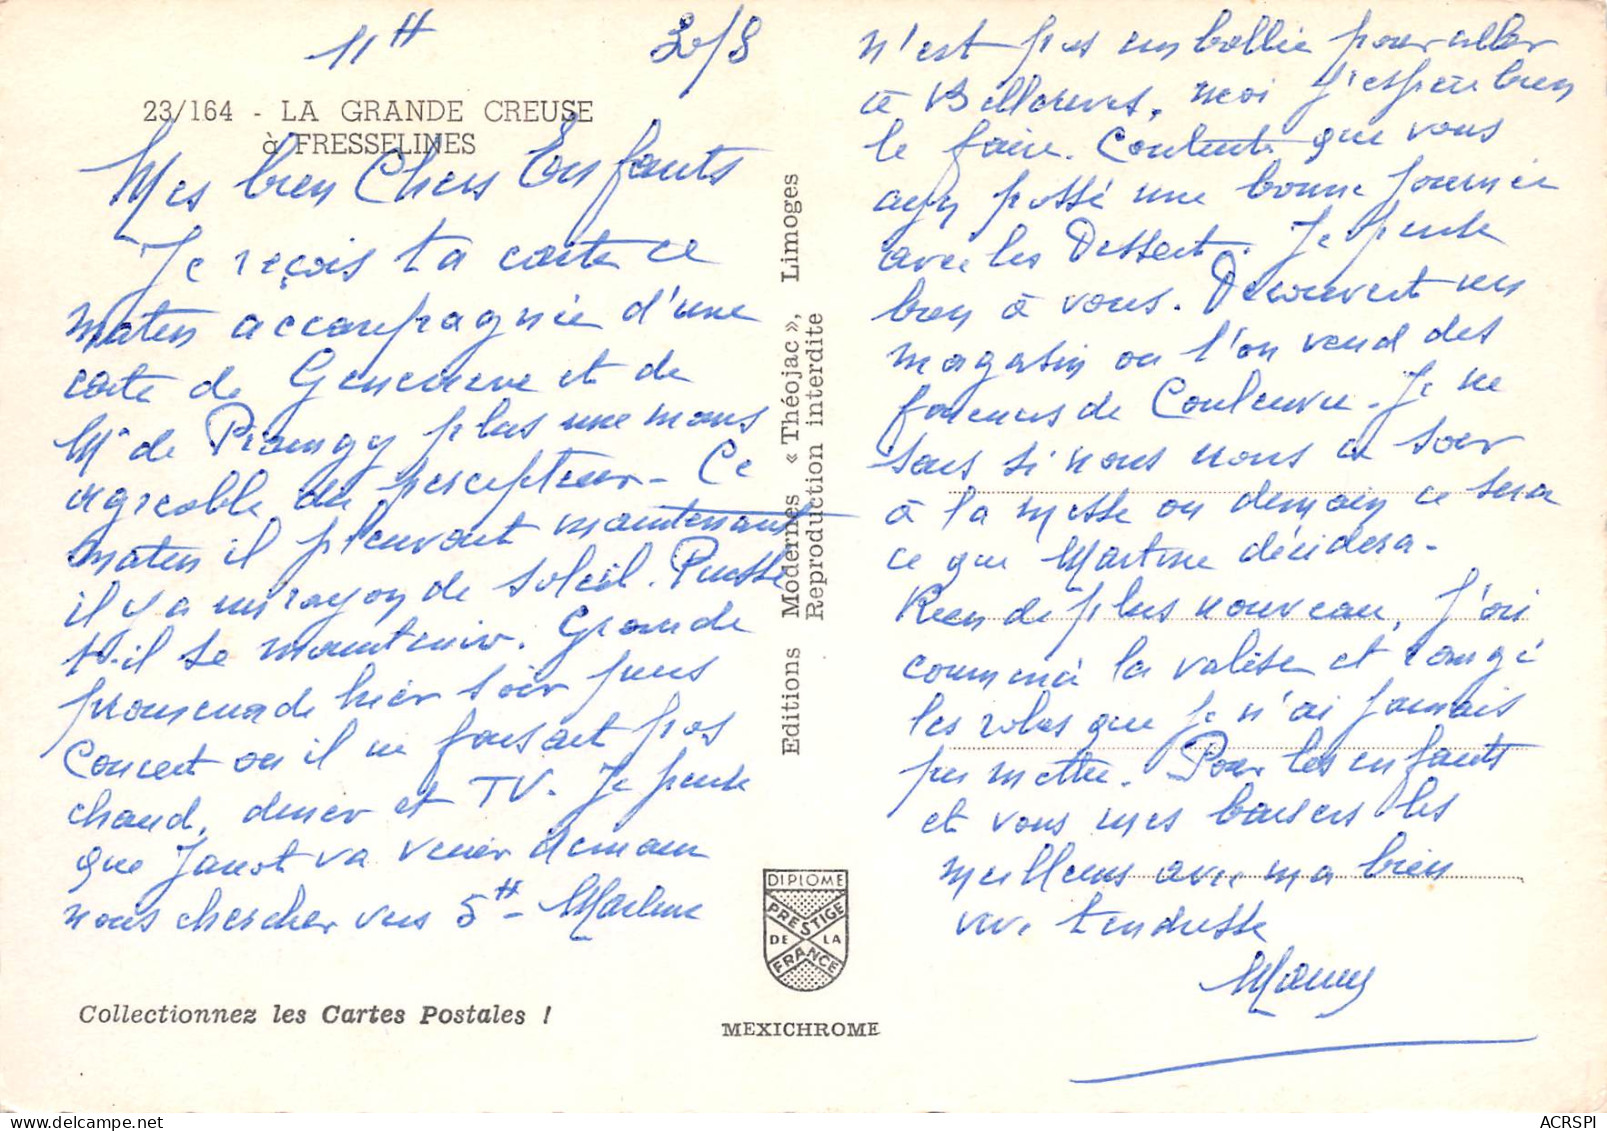 11H 30/8
23/164 - LA GRANDE CREUSE
à FRESSELINES
Mes bien Chers Enfants
Je reçois ta carte ce
matin accompagnée d'une
carte de Geneviève et de
Mr de plus une moins
agréable du percepteur - Ce
matin il pleuvait maintenant
il y a un rayon de soleil. Puisse
t-il se maintenir. Grande
promenade hier soir puis
Concert où il ne faisait pas
chaud, diner et TV. Je pense
que Janot va venir demain
nous chercher vers 5H - Martine
n'est pas emballée pour aller
à moi j'espère bien
le faire. Contente que vous
ayez passé une bonne journée
avec les Dessert. Je pense
bien à vous. Découvert un
magasin où l'on vend des
faïences de Couleuvre. Je ne
sais si nous irons ce soir
à la messe ou demain ce sera
ce que Martine décidera -
Rien de plus nouveau, j'ai
commencé la valise et rangé
les robes que je n'ai jamais
pu mettre. Pour les enfants
et vous mes baisers les
meilleurs avec ma bien
vive tendresse
Mamy
Editions Modernes « Théojac », Limoges
Reproduction interdite
DIPLOME
PRESTIGE
DE LA
FRANCE
Collectionnez les Cartes Postales !
MEXICHROME
ACRSPI